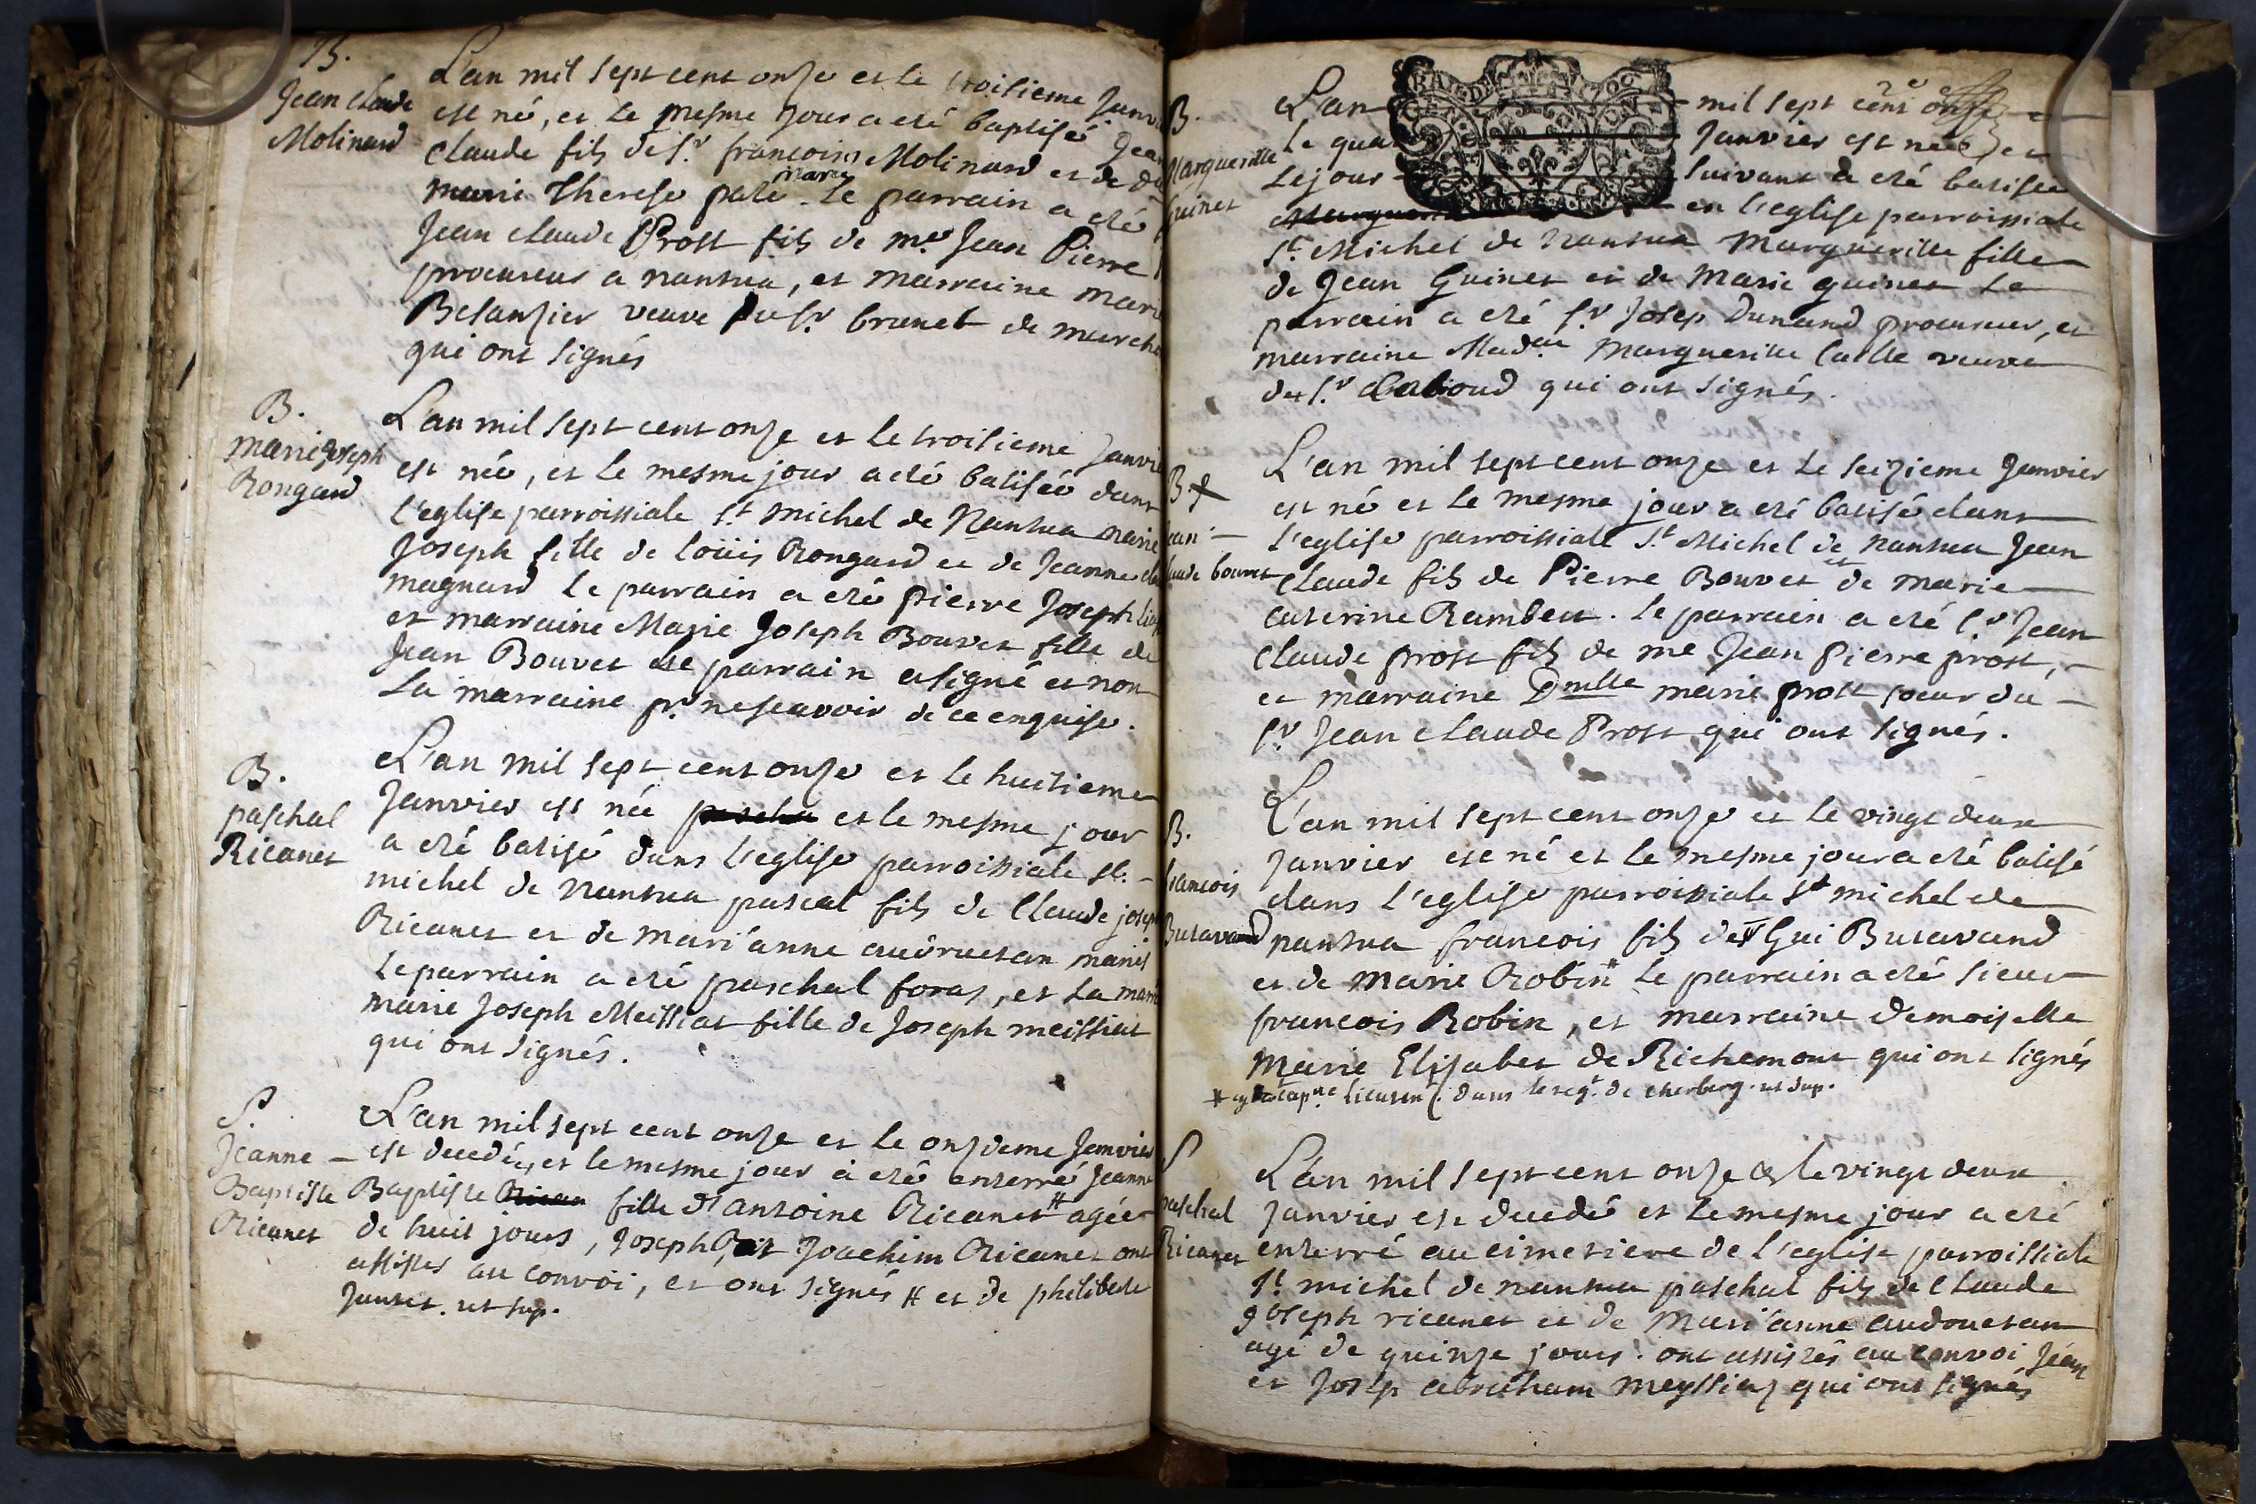 B.
Jean claude
Molinard
L'an mil sept cent onze et le troisieme Janvi
est né, et le mesme jour a eté baptisé Jean
claude fils de Sr. francois Molinard et de
marie
Therese pate. Le parrain a eté
Jean claude Prost fils de me Jean Pierre
procureur a nantua, et marraine mari
Besansier veuve du Sr. brunet de march
qui ont signés
B.
marie Joseph
Rongard
L'an mil sept cent onze et le troisieme Janvie
est née, et le mesme jour a eté batisée dans
l'eglise parroissiale St michel de Nantua marie
Joseph fille de loüis Rongard et de Jeanne
magnard Le parrain a eté pierre Joseph
et marraine Marie Joseph Bouvet fille de
Jean Bouvet Le parrain a signé et non
La marraine pr. ne scavoir de ce enquise.
B.
paschal
Ricanet
L'an mil sept cent onze et le huitieme
Janvier est née et le mesme jour
a eté batisé dans l'eglise parroissiale St. -
michel de nantua pascal fils de Claude joseph
Ricanet et de mari'anne mariés
Le parrain a eté paschal foras, et La marr
marie Joseph Meissiat fille de Joseph meissiat
qui ont signés.
S.
Jeanne -
Baptiste
Ricanet
L'an mil sept cent onze et le onzieme Janvier
est decedée, et le mesme jour a eté enterré Jeanne
Baptiste fille d'antoine Ricanet # agée
de huit jours, Joseph, et Joachim Ricanet ont
assistes au convoi, et ont signés # et de philiberte
Jantet. ut sup.
B.
Marguerite
Guinet
L'an mil sept cent onze
Le qua Janvier est née, et
Le jour suivant a eté batisée
en l'eglise parroissiale
St. Michel de Nantua Marguerite fille
de Jean Guinet et de Marie guinet Le
parrain a eté Sr Josep Dunand procureur, et
marraine Madme Marguerite Caille veuve
du Sr qui ont signés.
B
Jean -
claude bouvet
L'an mil sept cent onze et Le seizieme Janvier
est né et le mesme jour a eté batisé dans
l'eglise parroissiale St. Michel de nantua Jean
Claude fils de Pierre Bouvet et de marie
caterine Rambert. Le parrain a eté Sr Jean
Claude prost fils de me Jean pierre prost,
et marraine Dmlle marie prost soeur du
Sr Jean claude Prost qui ont signés.
B.
francois
Butavand
L'an mil sept cent onze et Le vingt deux
Janvier est né et le mesme jour a eté batisé
dans l'eglise parroissiale St michel de
nantua francois fils de Gui Butavand
et de Marie Robin * Le parrain a eté sieur
francois Robin, et marraine demoiselle
Marie Elisabet de Richemont qui ont signés
* capne dans le regt. de cherberg. ut sup.
S
paschal
Ricanet
L'an mil sept cent onze & le vingt deux
Janvier est decedé et Le mesme jour a eté
enterré au cimetiere de l'eglise parroissiale
St. michel de nantua paschal fils de Claude
Joseph ricanet et de Mari'anne audouetan
agé de quinze jours. ont assistés au convoi Jean
et Josep abraham meyssiaz qui ont signés